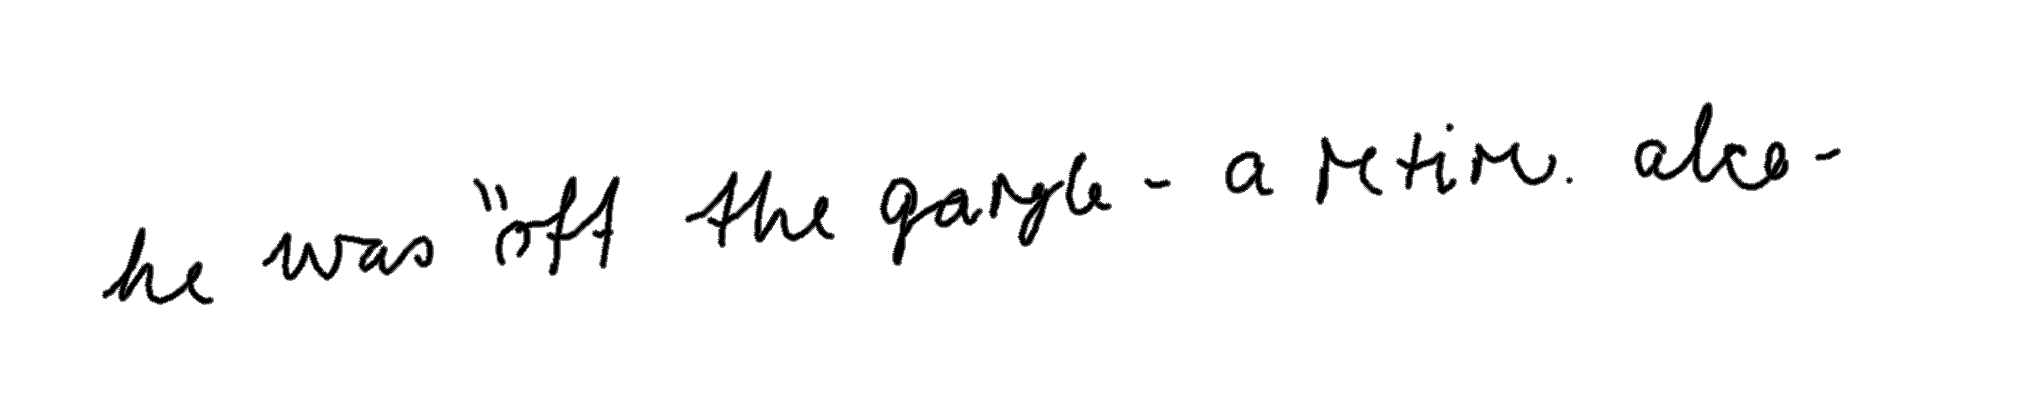 he was "off the gargle - a retir. alco-